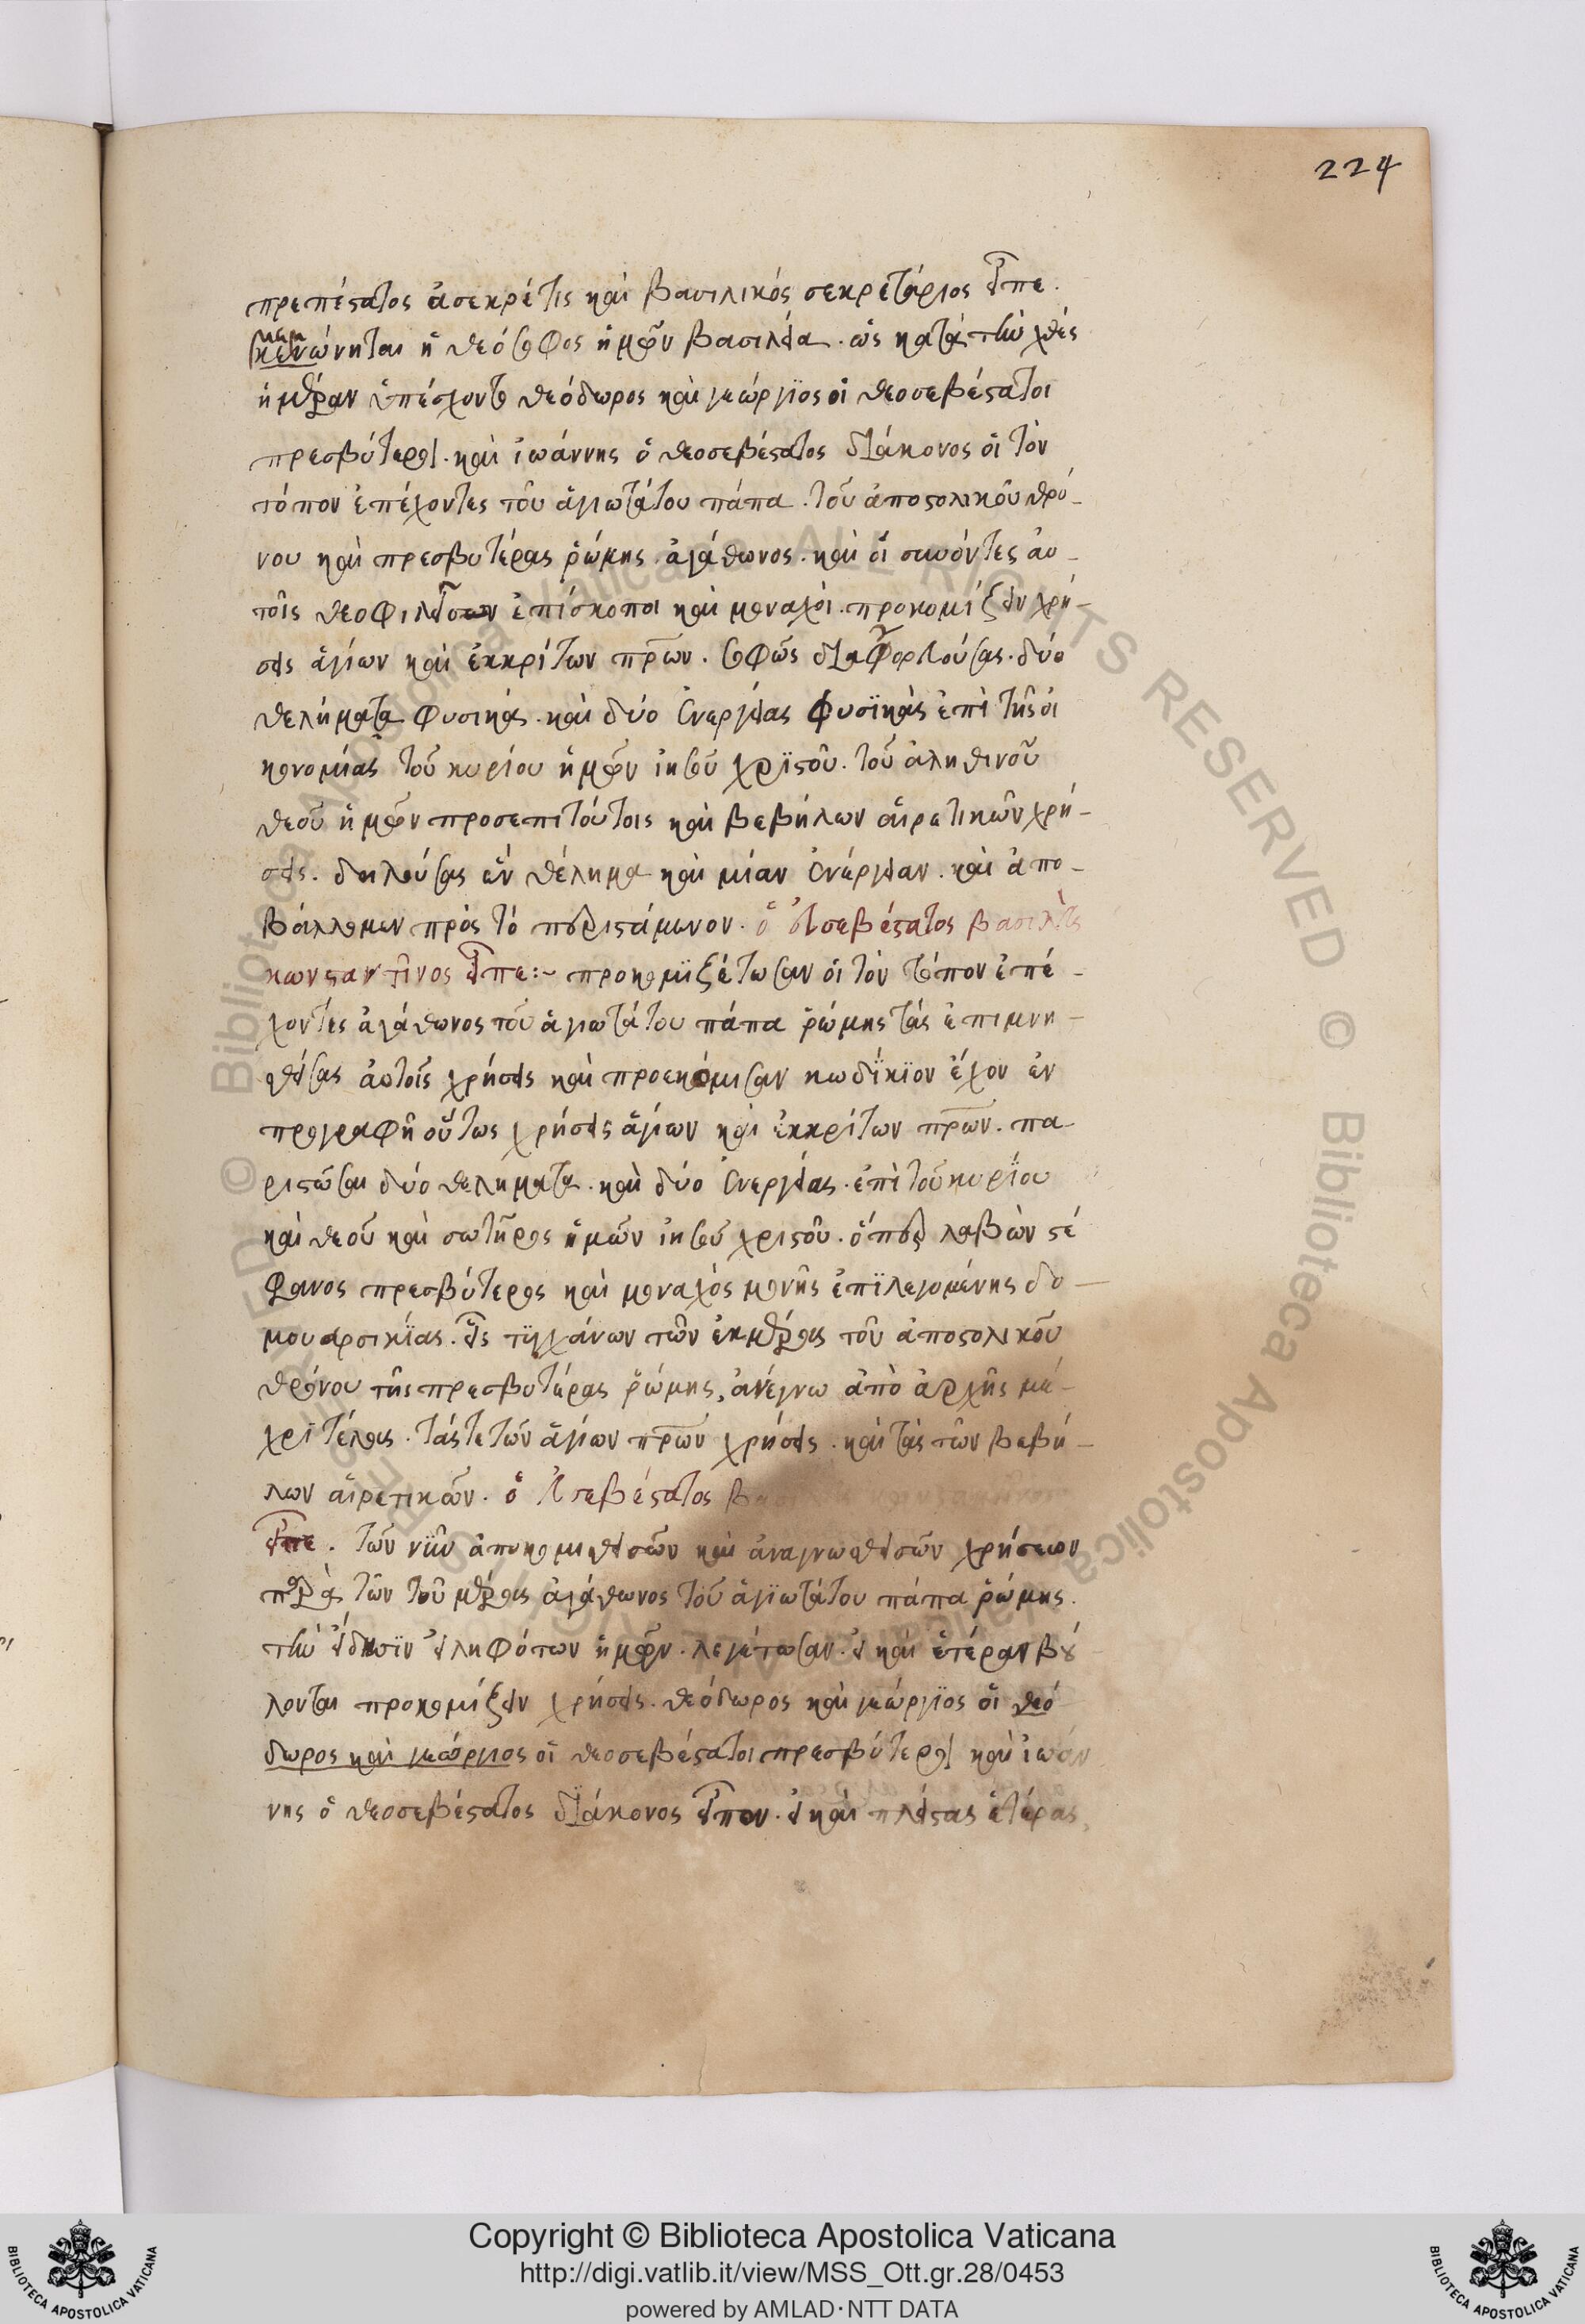 224
πρεπέστατος ἀσεκρέτις καὶ βασιλικός σεκρετάριος εἶπε.
μέμνηται ἡ θεόσοφος ἡμῶν βασιλεία. ὡς κατὰ τὴν χθὲς
ἡμέραν ὑπέσχοντο θεόδωρος καὶ γεώργϊος οἱ θεοσεβέστατοι
πρεσβύτεροι. καὶ ἰωάννης ὁ θεοσεβέστατος διάκονος οἱ τὸν
τόπον ἐπέχοντες τοῦ ἁγιωτάτου πάπα. τοῦ ἀποστολικοῦ θρό-
νου καὶ πρεσβυτέρας ῥώμης ἀγάθωνος. καὶ οἱ συνόντες αὐ-
τοῖς θεοφιλεῖς ἐπίσκοποι καὶ μοναχοὶ. προκομίζειν χρή-
σεις ἁγίων καὶ ἐκκρίτων πρων. σαφῶς διαγορευούσας. δύο
θελήματα φυσικάς. καὶ δύο ἐνεργείας φυσϊκὰς ἐπὶ τῆς οἰ
κονομίας τοῦ κυρίου ἡμῶν ἰησοῦ χρϊστοῦ. τοῦ ἀληθινοῦ
θεοῦ ἡμῶν προσεπιτούτοις καὶ βεβήλων αἱρετικῶν χρή-
σεις. δηλούσας ἓν θέλημα καὶ μίαν ἐνέργειαν. καὶ ἀπο-
βάλλομεν πρὸς τὸ παριστάμενον. ὁ εὐσεβέστατος βασιλεὺς
κωνσταντῖνος εἶπε:~ προκομϊζέτωσαν οἱ τὸν τόπον ἐπέ-
χοντες ἀγάθωνος τοῦ ἁγιωτάτου πάπα ῥώμης τὰς ἐπιμνη-
σθείσας αὐτοῖς χρήσεις καὶ προεκόμισαν κωδΐκϊον ἔχον ἐν
προγραφῇ οὕτως χρήσεις ἁγίων καὶ ἐκκρίτων πρων. πα-
ριστῶσαι δύο θελήματα. καὶ δύο ἐνεργείας. ἐπὶ τοῦ κυρΐου
καὶ θεοῦ καὶ σωτῆρος ἡμῶν ἰησοῦ χριστοῦ. ὅπερ λαβὼν στέ
φανος πρεσβύτερος καὶ μοναχὸς μονῆς ἐπϊλεγομένης δο-
μουαρσικίας. εἷς τϋγχάνων τῶν ἐκ μέρους τοῦ ἀποστολικοῦ
θρόνου τῆς πρεσβυτέρας ῥώμης, ἀνέγνω ἀπὸ ἀρχῆς μέ-
χρι τέλους. τάς τε τῶν ἁγίων πρων χρήσεις. καὶ τὰς τῶν βεβή-
λων αἱρετικῶν. ὁ εὐσεβέστατος
εἶπε. τῶν νῦν ἀποκομισθεισῶν καὶ ἀναγνωσθεισῶν χρήσεων
παρὰ τῶν τοῦ μέρους ἀγάθωνος τοῦ ἁγϊωτάτου πάπα ῥώμης.
τὴν εἴδησϊν εἰληφότων ἡμῶν. λεγέτωσαν. εἰ καὶ ἑτέραν βού
λονται προκομίζειν χρήσεις. θεόδωρος καὶ γεώργϊος οἱ θεό
δωρος καὶ γεώργιος οἱ θεοσεβέστατοι πρεσβύτεροι καὶ ἰωάν
νης ὁ θεοσεβέστατος διάκονος εἶπον. εἰ καὶ πλείστας ἑτέρας,
Copyright © Biblioteca Apostolica Vaticana
http://digi.vatlib.it/view/MSS_Ott.gr.28/0453
powered by AMLAD・NTT DATA